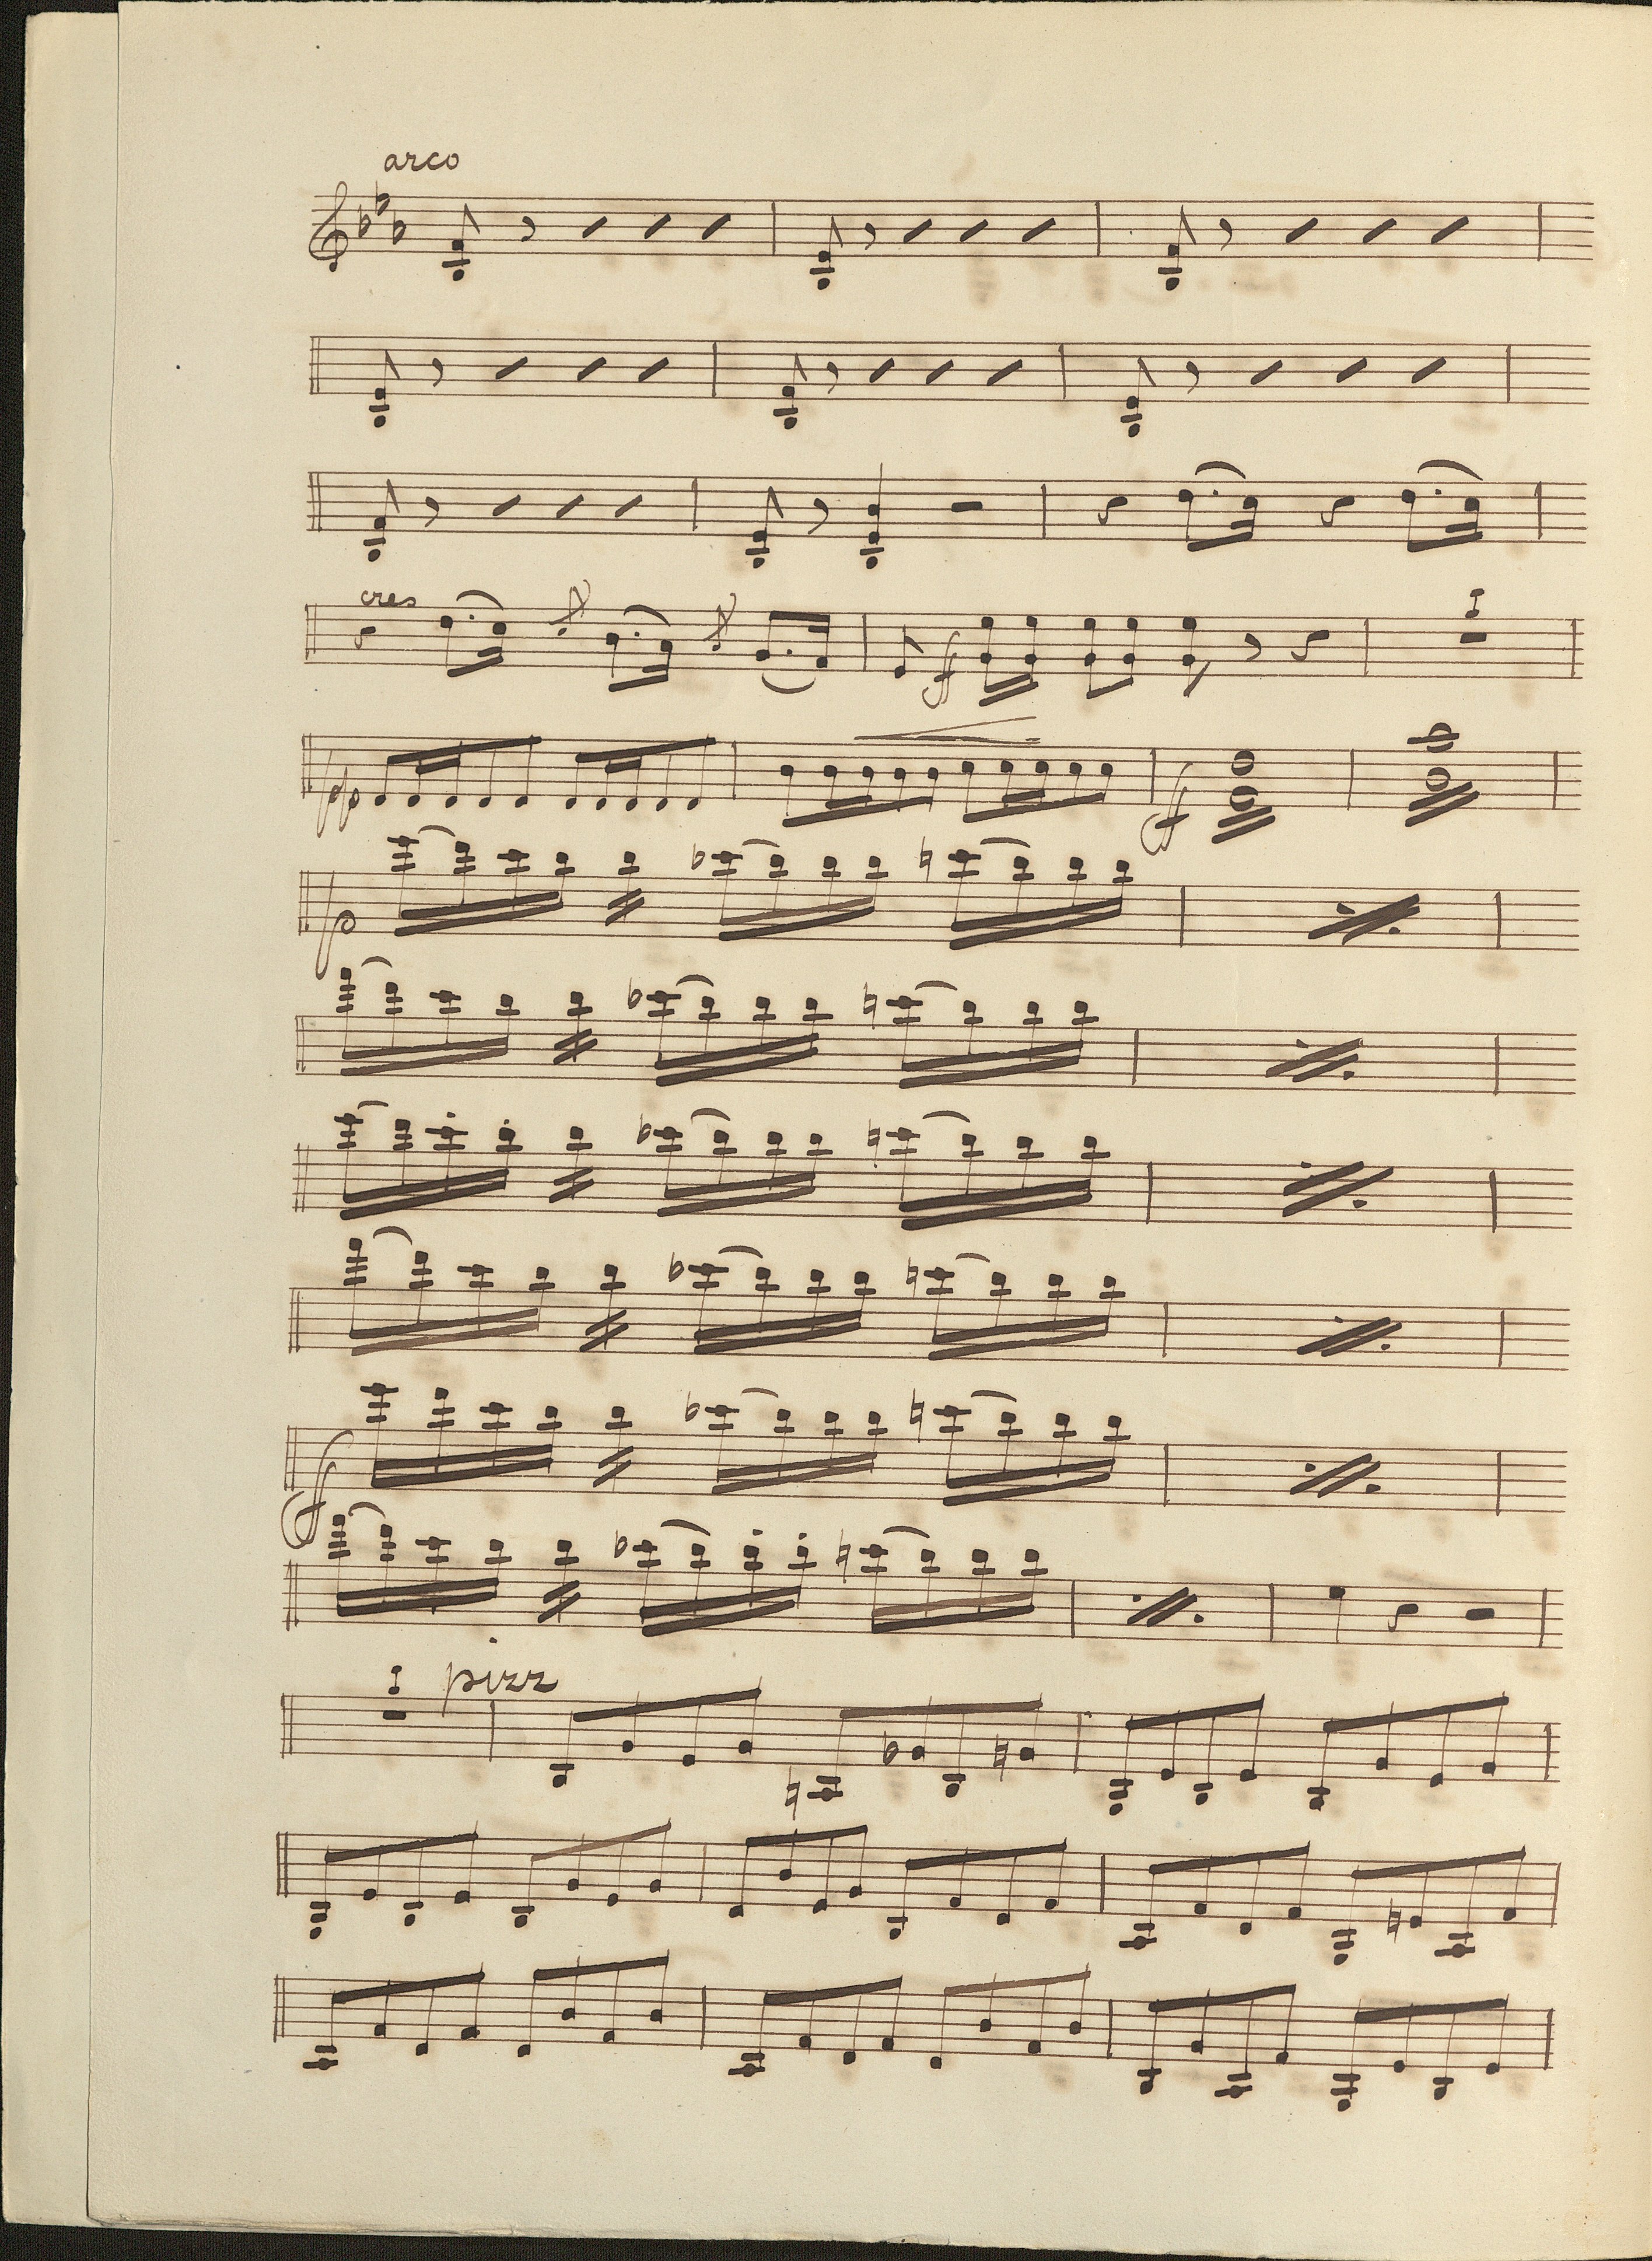 arco
cres
ff
I
pp
ff
p
ff
I pizz